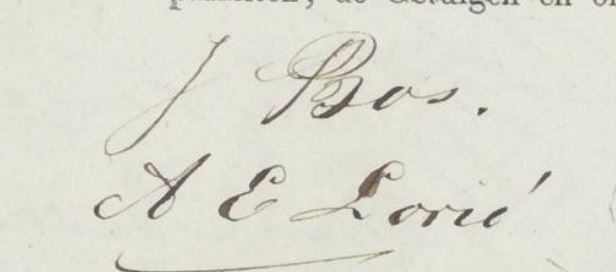 de Getuigen en
J Bos.
A E Lorié